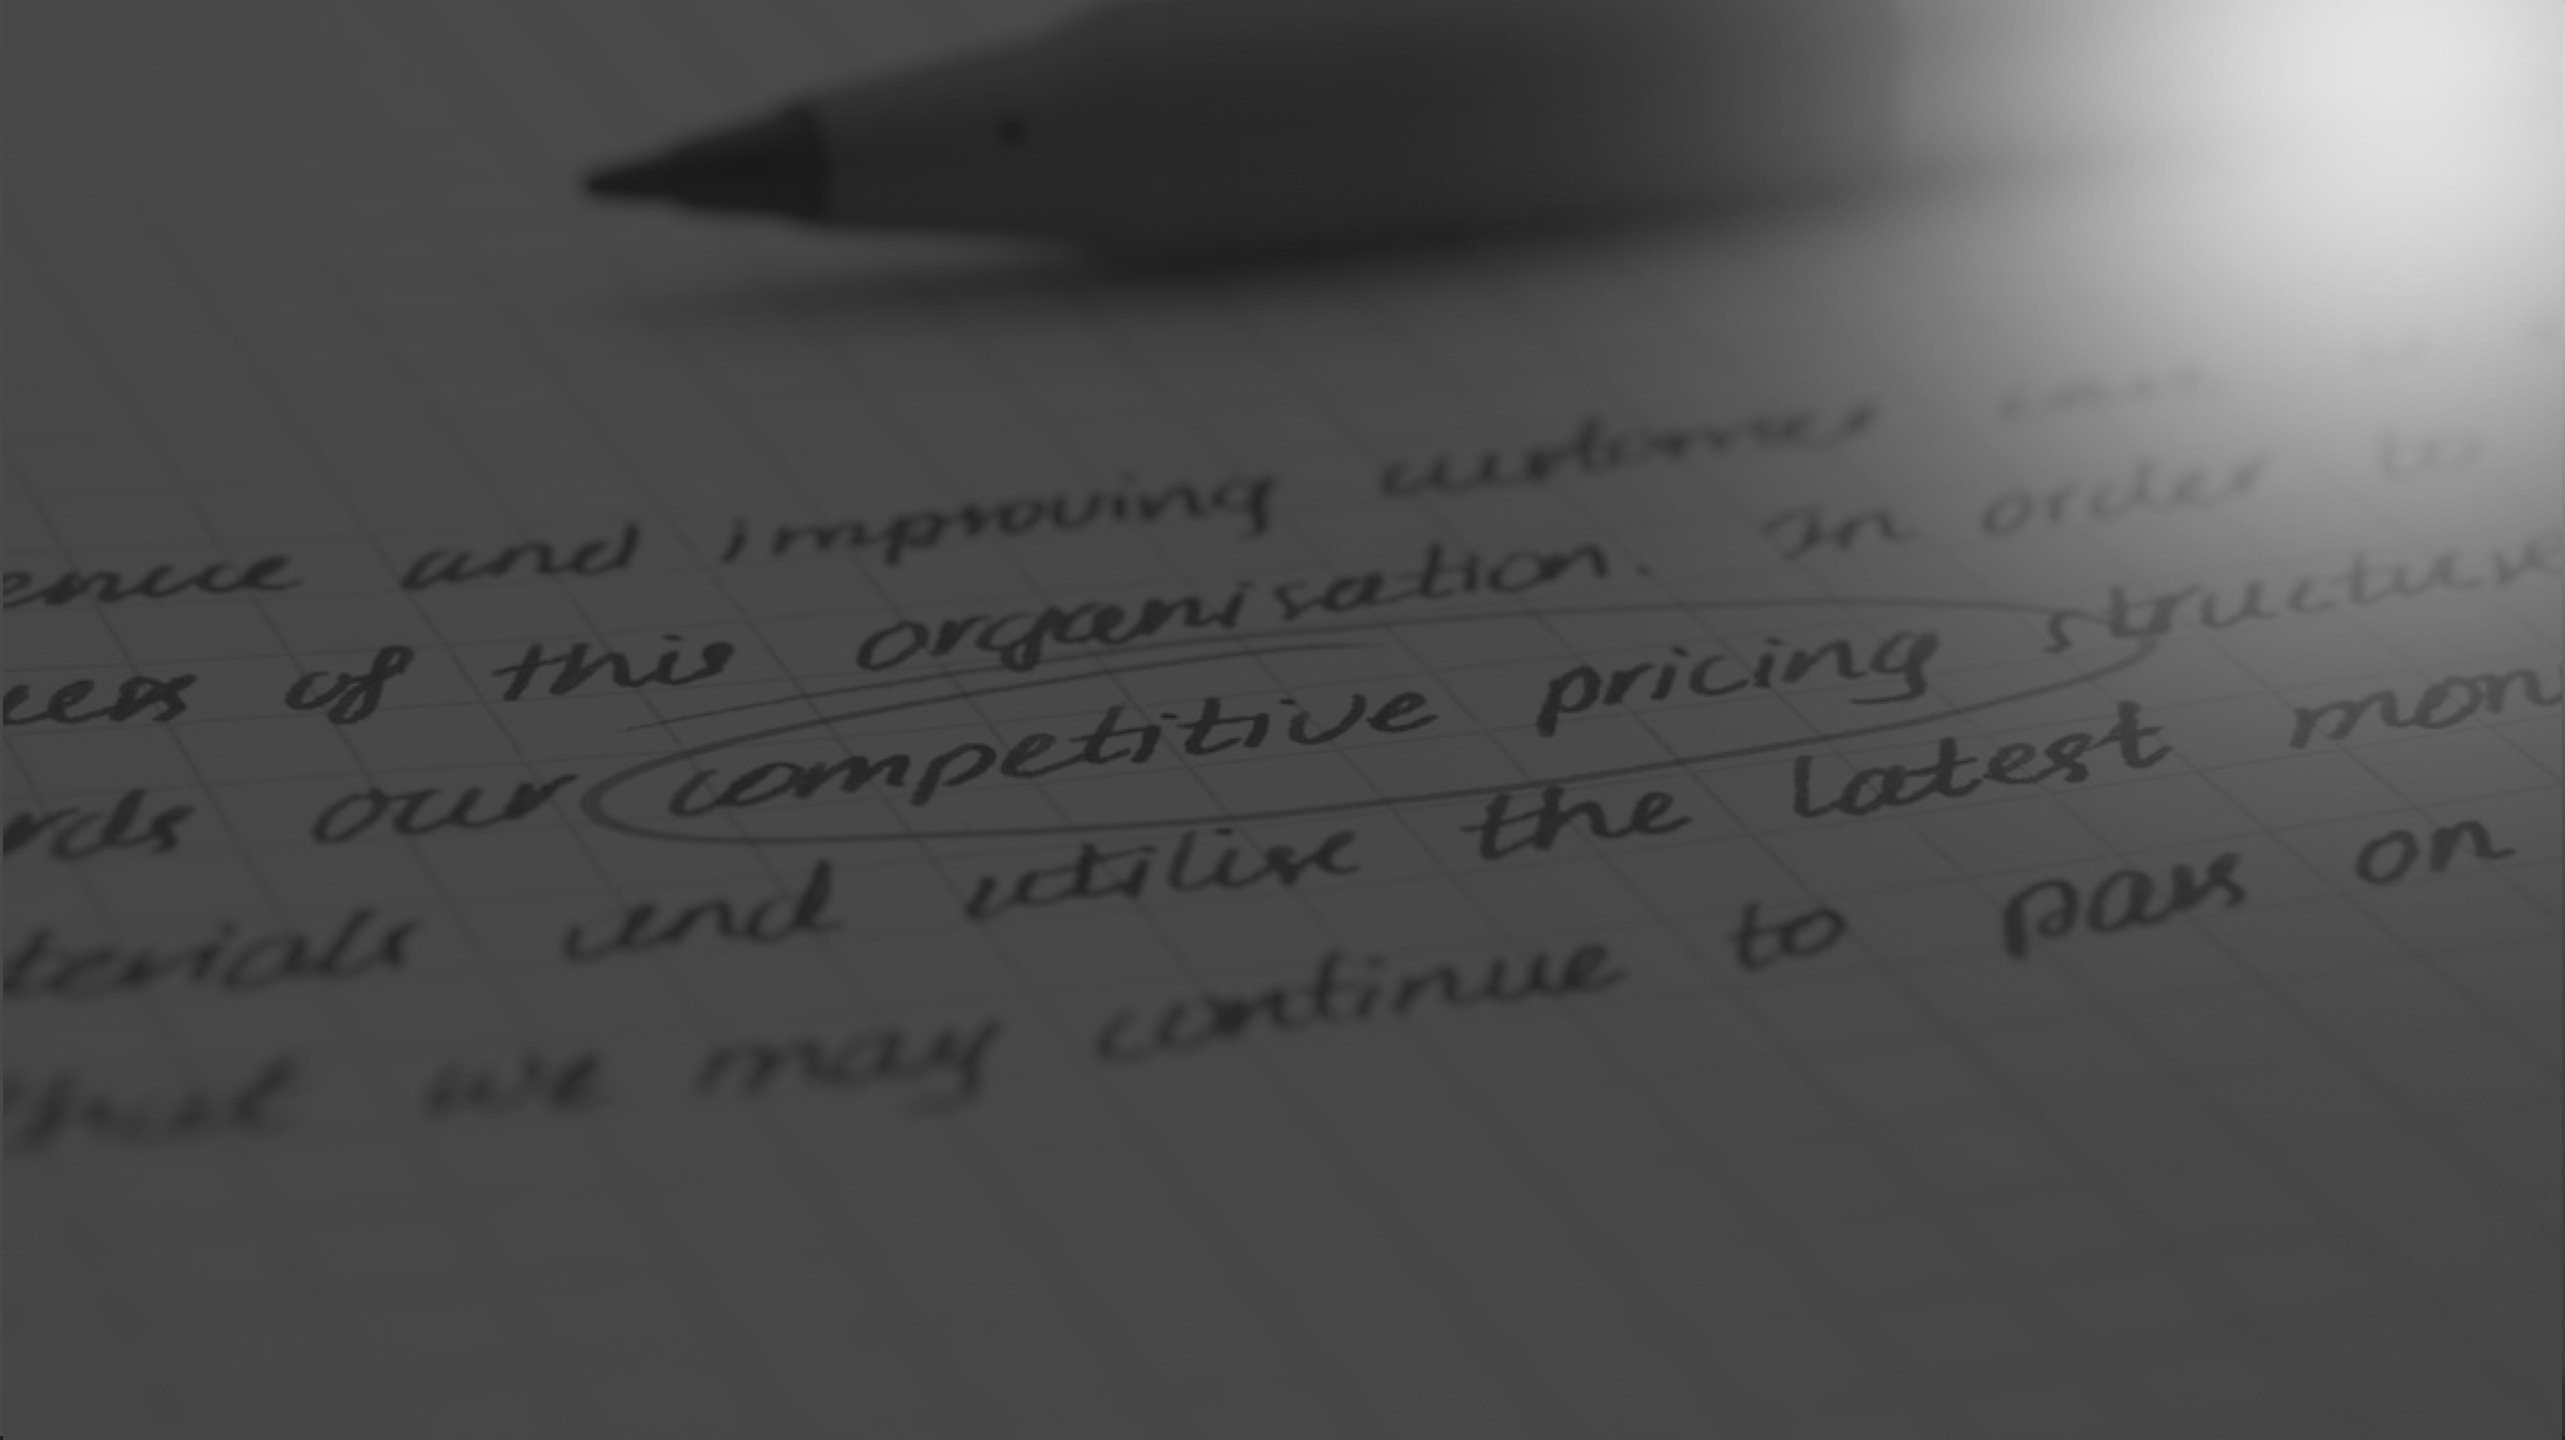 enue and improving customer
cess of this organisation. In order to
rds our competitive pricing structure
terials and utilise the latest mon
that we may continue to pass on